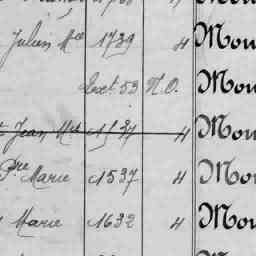 Julien Mce 1739 4 Mou
Lect. 53 N.O. Mou
Jean 4 Mou
Pre Marie 1537 4 Mou
Marie 1632 4 Mou